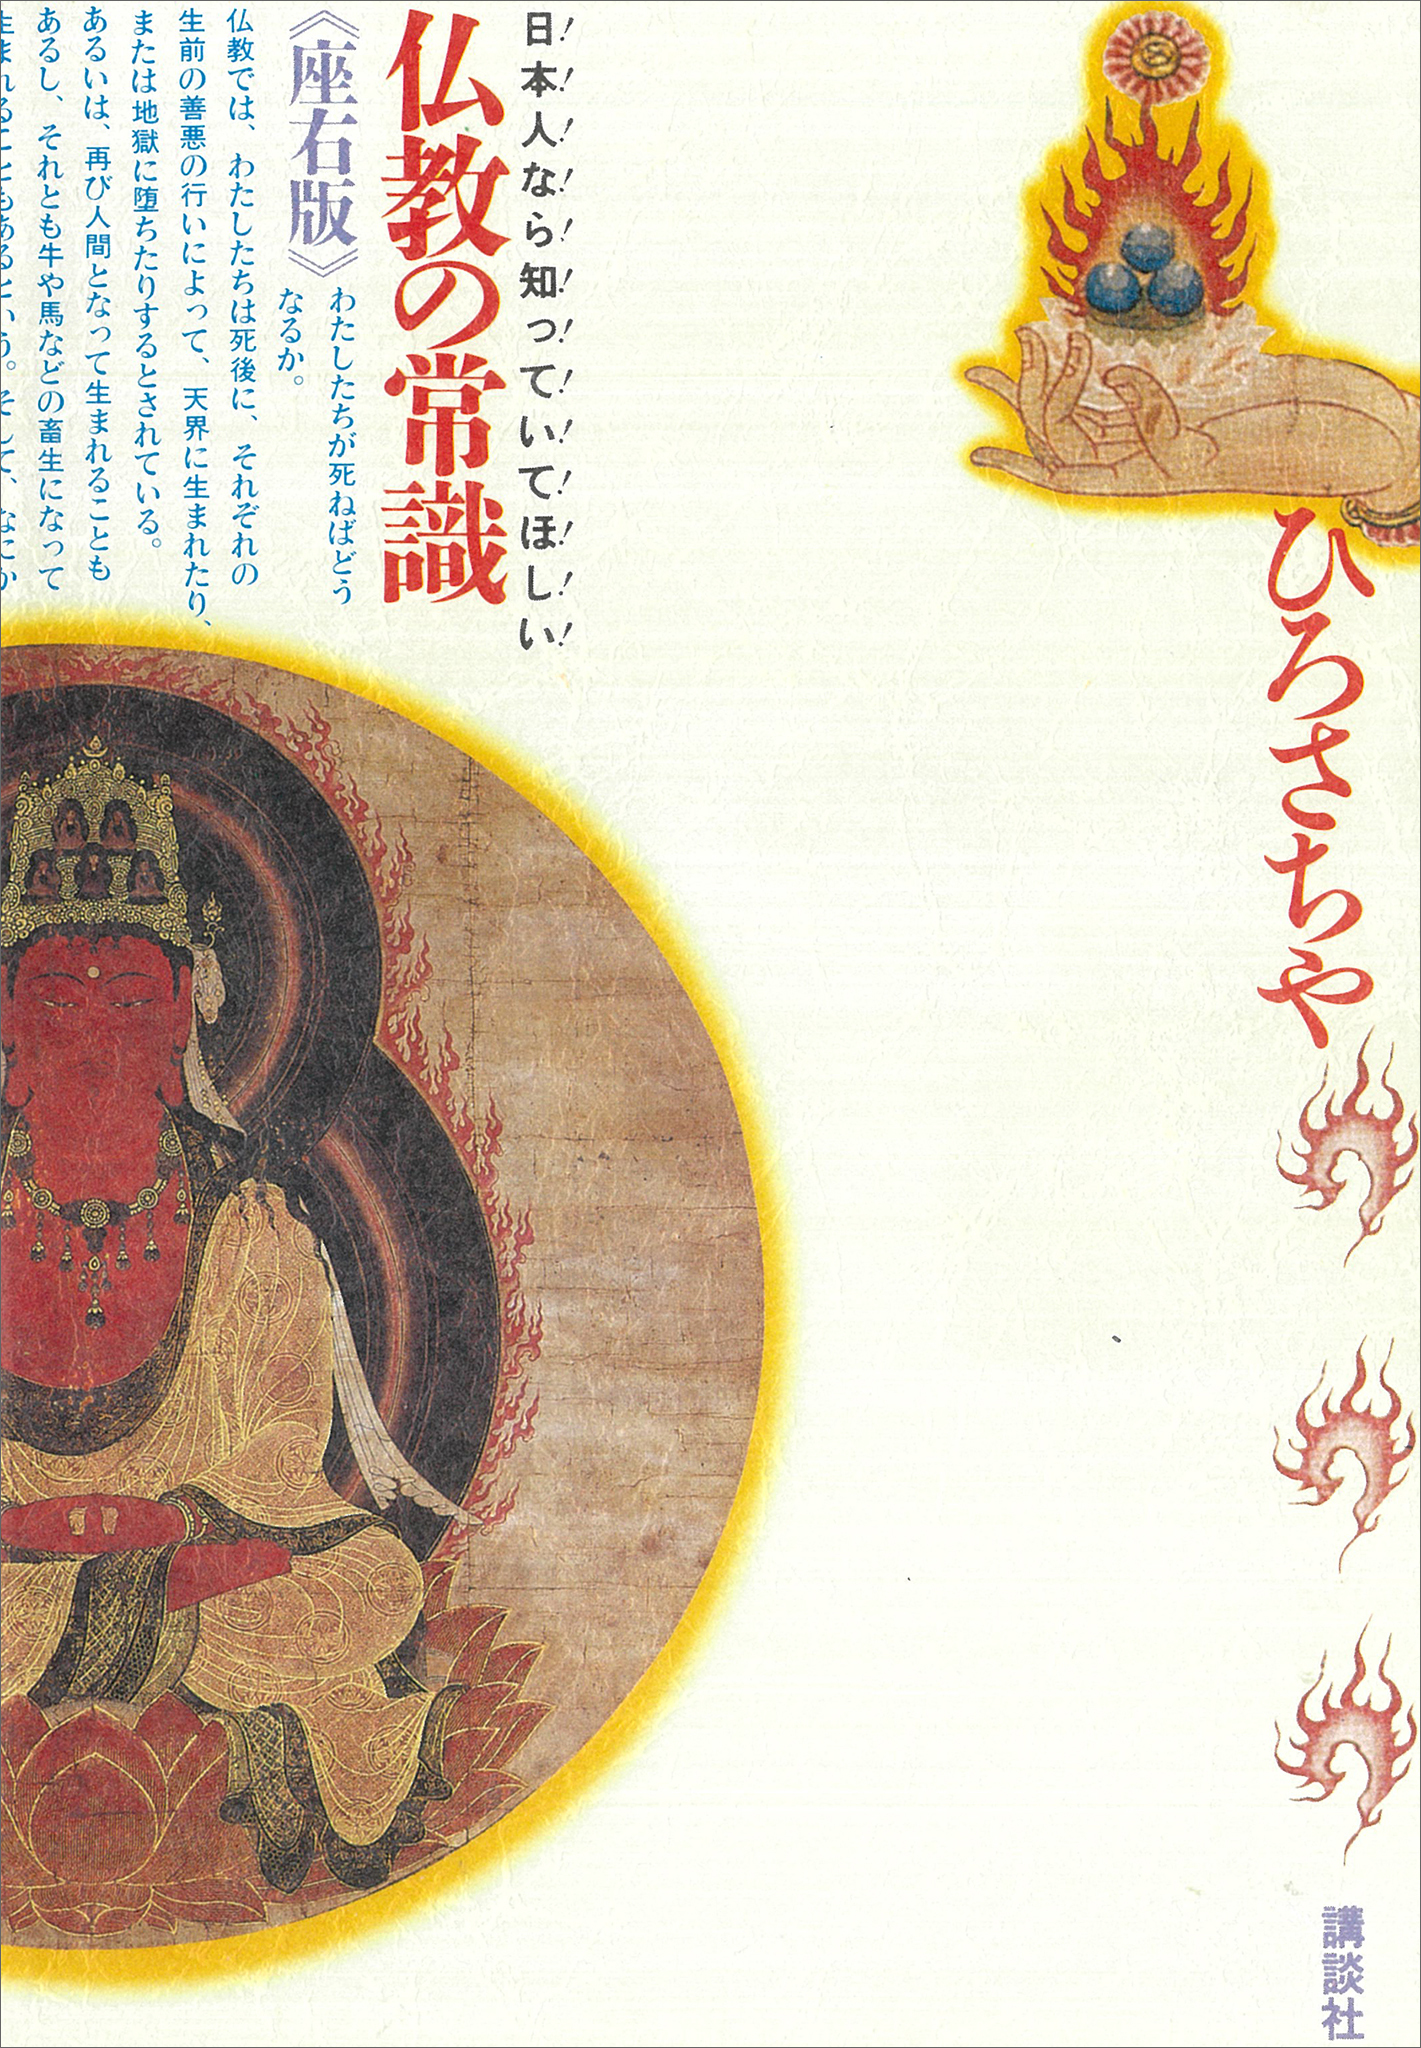 日本人なら知っていてほしい
仏教の常識
《座右版》
わたしたちが死ねばどう
なるか。
仏教では、わたしたちは死後に、それぞれの
生前の善悪の行いによって、天界に生まれたり、
または地獄に堕ちたりするとされている。
あるいは、再び人間となって生まれることも
あるし、それとも牛や馬などの畜生になって
生まれることもあるという。そして、なにか
ひろさちや
講談社